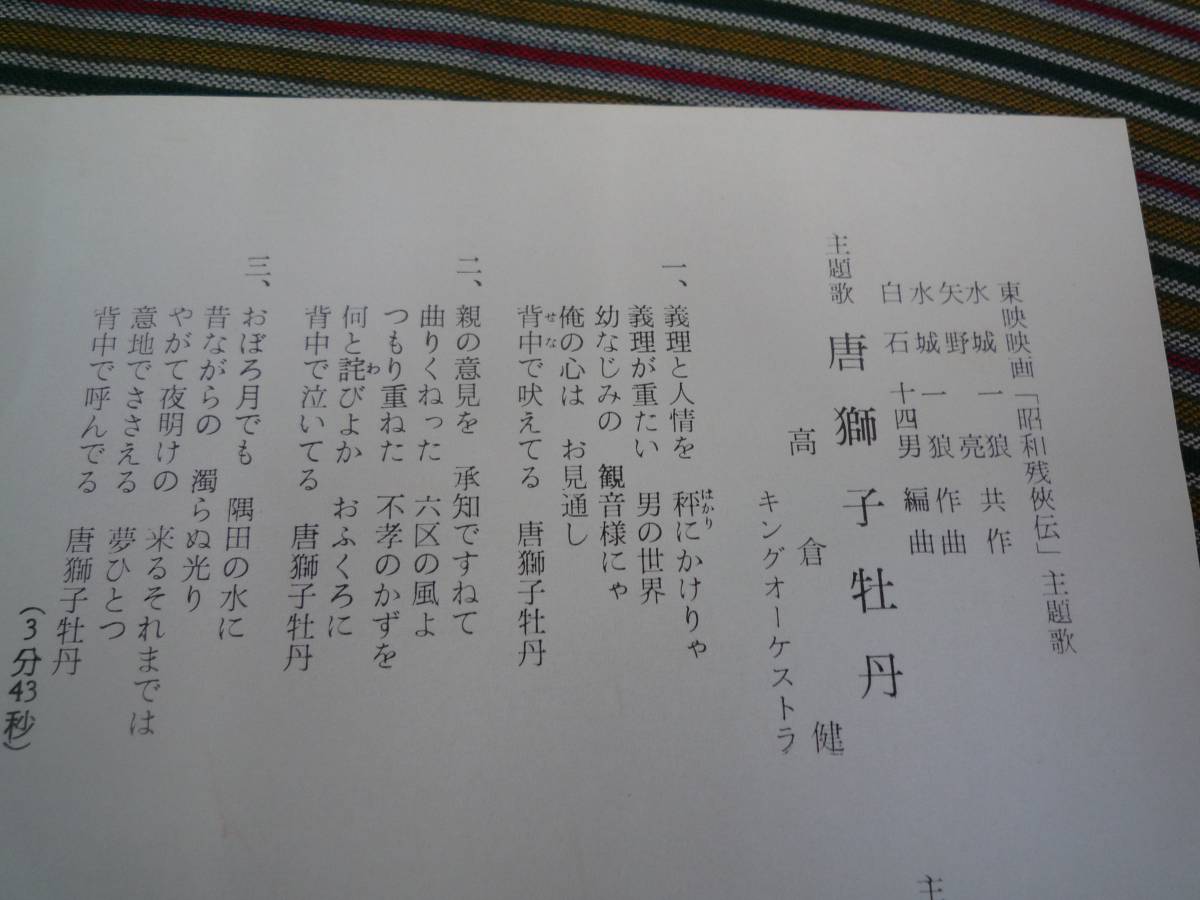 東映映画「昭和残俠伝」主題歌
水城一狼
矢野亮 共作
水城一狼 作曲
白石十四男 編曲
主題歌 唐獅子牡丹
高倉健
キングオーケストラ
一、義理と人情を 秤にかけりゃ
はかり
義理が重たい 男の世界
幼なじみの 観音様にゃ
俺の心は お見通し
背中で吠えてる 唐獅子牡丹
せな
二、親の意見を 承知ですねて
曲りくねった 六区の風よ
つもり重ねた 不孝のかずを
何と詫びよか おふくろに
わ
背中で泣いてる 唐獅子牡丹
三、おぼろ月でも 隅田の水に
昔ながらの 濁らぬ光り
やがて夜明けの 来るそれまでは
意地でささえる 夢ひとつ
背中で呼んでる 唐獅子牡丹
(3分43秒)
主